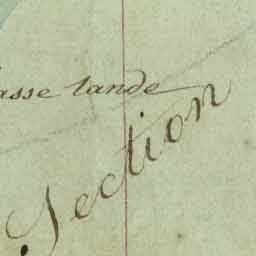 asse lande
Section